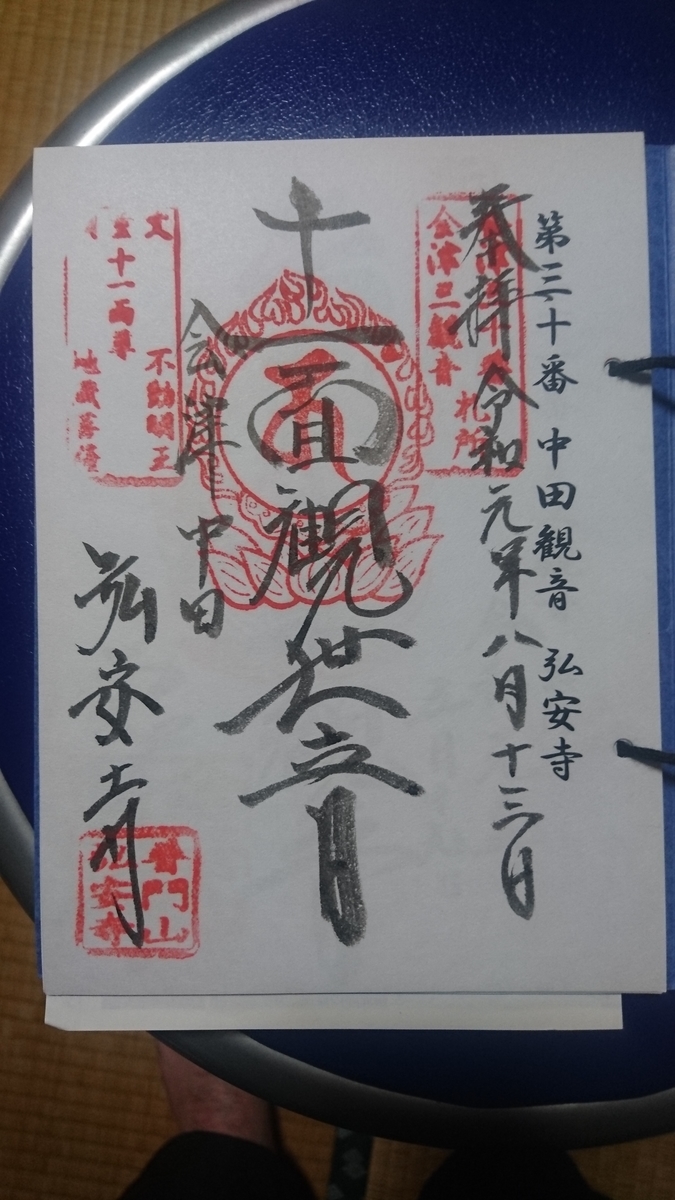 第三十番 中田観音 弘安寺
奉拝 令和元年八月十三日
札所
会津三観音
十一面観世音
会津 中田
弘安寺
不動明王
十一面尊
地蔵菩薩
普門山
弘安寺